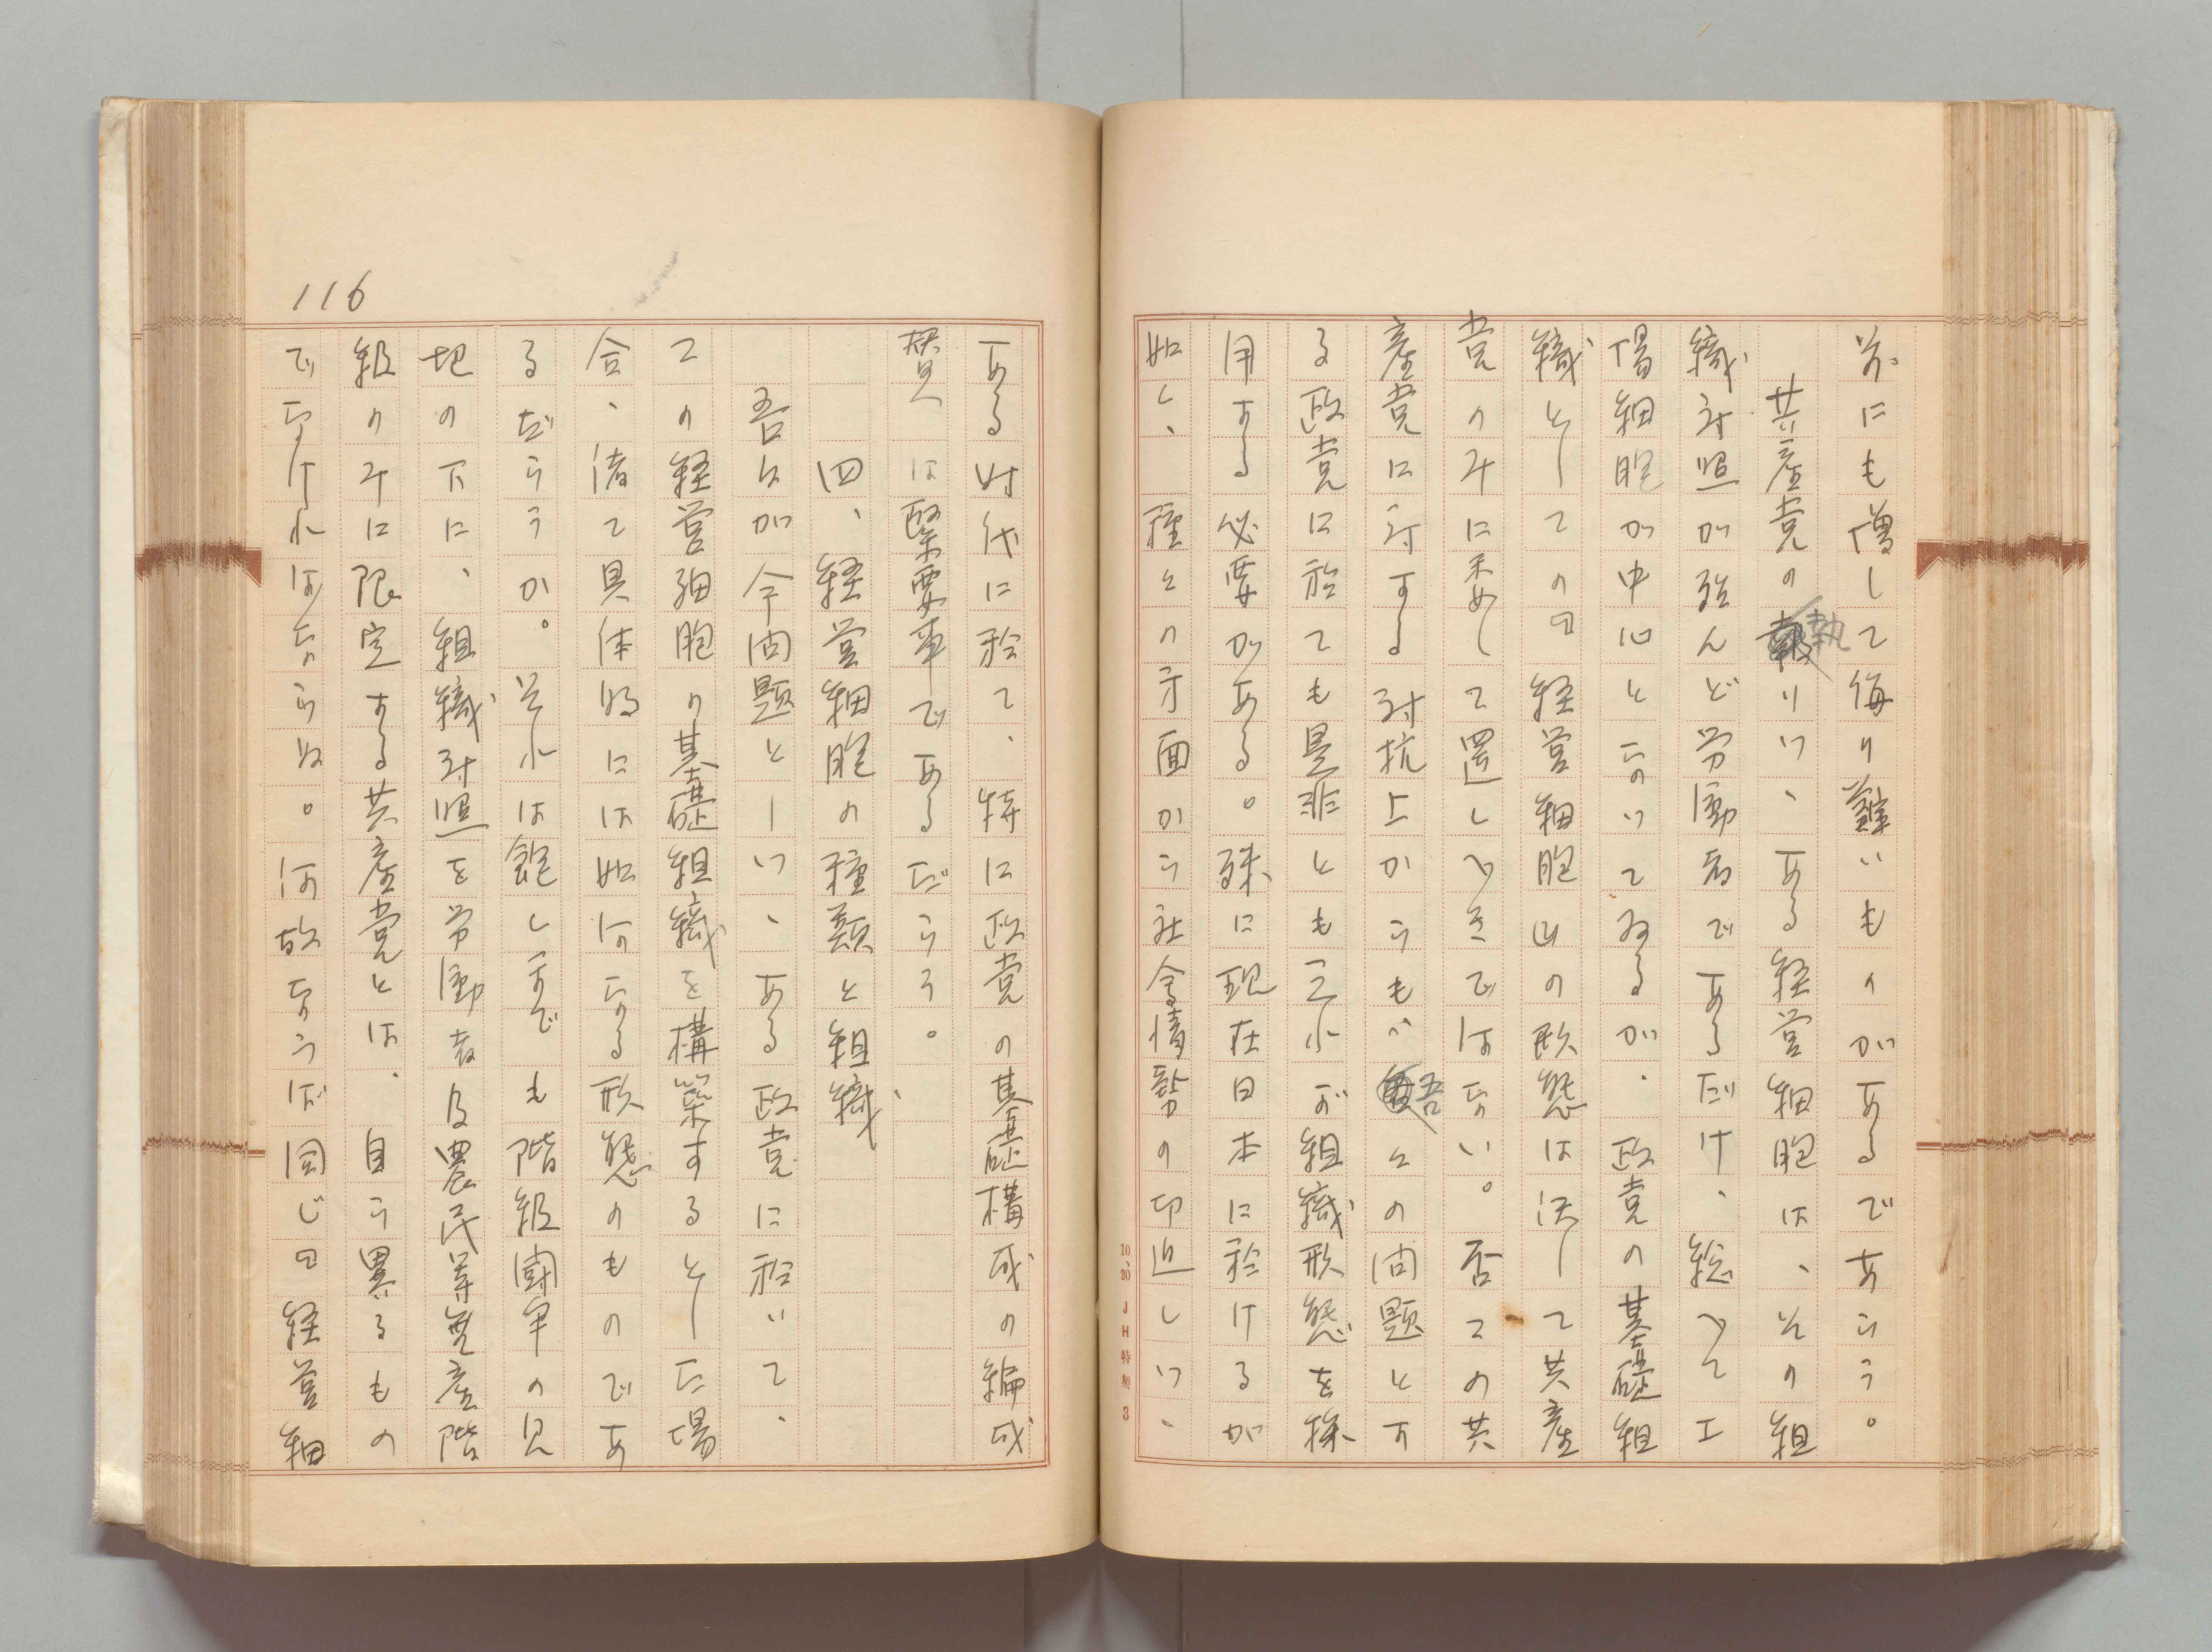 前にも増して侮り難いものがあるであらう。
共産党の執りつゝある経営細胞は、その組
織対照が殆んど労働者であるだけ、総べて工
場細胞が中心となつてゐるが、政党の基礎組
織としての『経営細胞』の形態は決して共産
党のみに委めて置しべきではない。否この共
産党に対する対抗上からも吾々の問題とす
る政党に於ても是非とも之れが組織形態を採
用する必要がある。殊に現在日本に於けるが
如く、種々の方面から社会情勢の切迫しつゝ
10、20 JH特製 3
ある時代に於て、特に政党の基礎構成の編成
替へは緊要事であるだらう。
四、経営細胞の種類と組織
吾々が今問題としつゝある政党に於いて、
この経営細胞の基礎組織を構築するとした場
合、偖て具体的には如何なる形態のものであ
るだらうか。それは飽くまでも階級闘争の見
地の下に、組織対照を労働者及農民等無産階
級のみに限定する共産党とは、自ら異るもの
でなければならぬ。何故ならば同じ『経営細
116